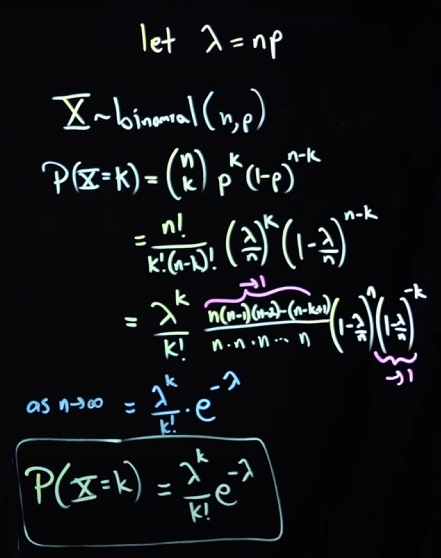 let λ = np
X ~ binomial(n,p)
P(X=k) = (n k) p^k (1-p)^{n-k}
= n!/(k!(n-k)!) (λ/n)^k (1-λ/n)^{n-k}
→1
= λ^k/k! n(n-1)(n-2)-(n-k+1)/(n·n·n···n) (1-λ/n)^n (1-λ/n)^{-k}
→1
as n→∞ = λ^k/k! · e^{-λ}
P(X=k) = λ^k/k! e^{-λ}